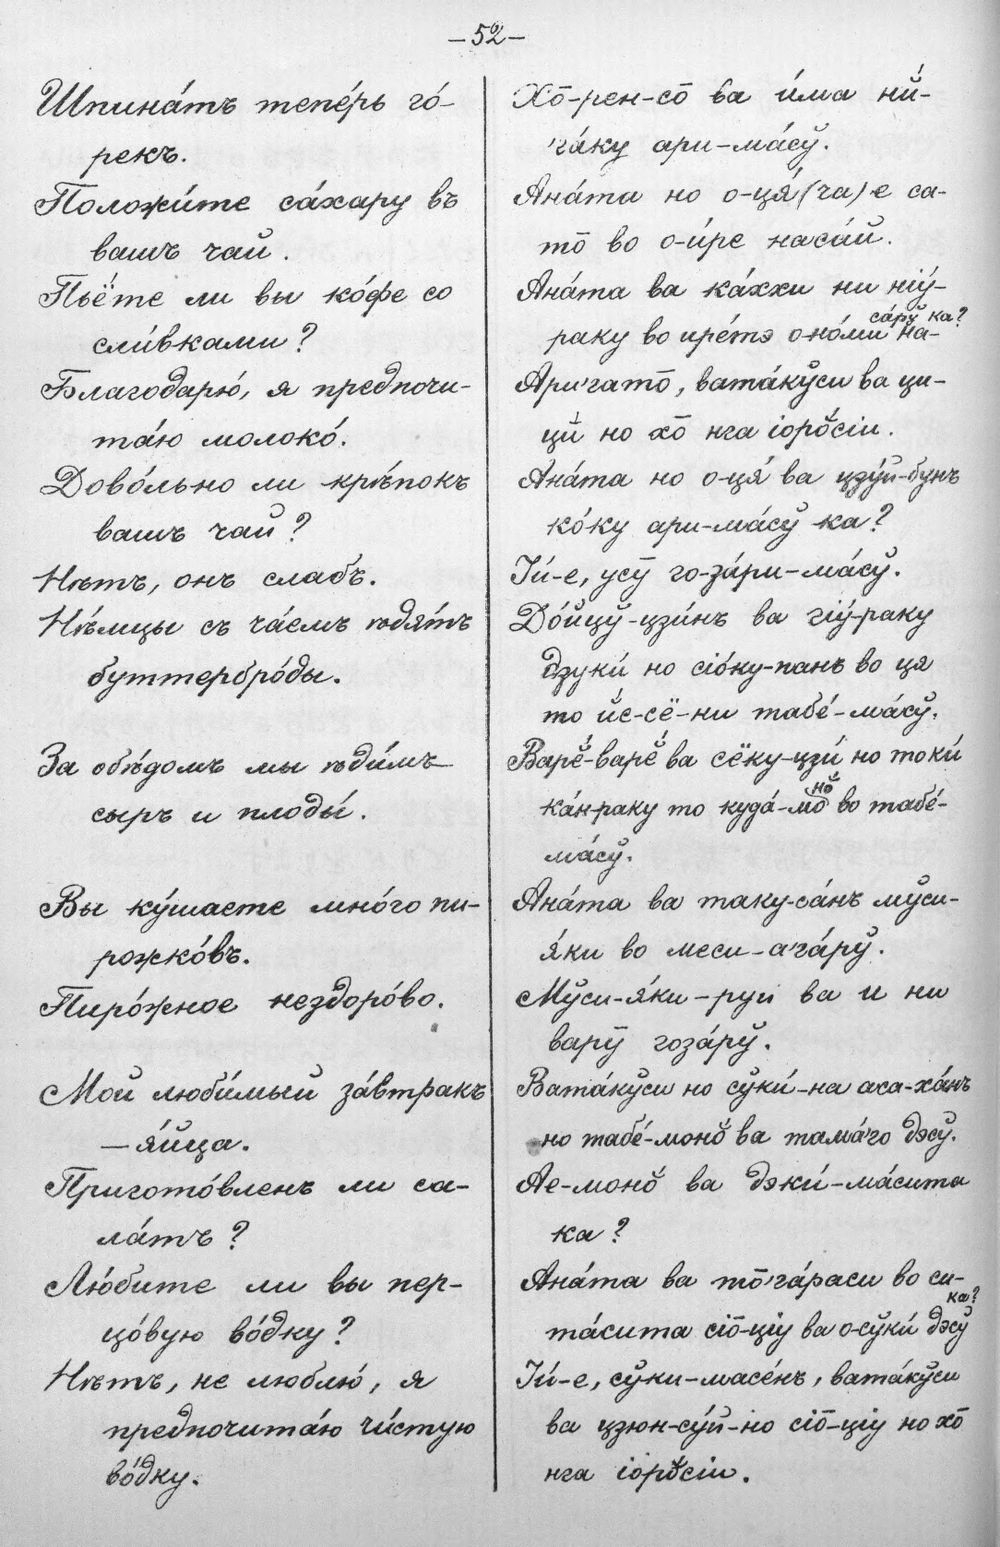 –52–
Шпина́тъ тепе́рь го́-
рекъ.
Положи́те са́хару въ
вашъ чай.
Пьёте ли вы ко́фе со
сли́вками?
Благодарю́, я предпочи-
та́ю молоко́.
Дово́льно ли крѣ́покъ
вашъ чай?
Нѣтъ, онъ слабъ.
Нѣ́мцы съ ча́емъ ѣдя́тъ
буттербро́ды.
За обѣ́домъ мы ѣди́мъ
сыръ и плоды́.
Вы ку́шаете мно́го пи-
рожко́въ.
Пиро́жное нездоро́во.
Мой люби́мый за́втракъ
– я́йца.
Пригото́вленъ ли са-
ла́тъ?
Лю́бите ли вы пер-
цо́вую во́дку?
Нѣтъ, не люблю́, я
предпочита́ю чи́стую
во́дку.
Хо̄-рен-со̄ ва и́ма ни́й-
'га́ку ари-ма́сў.
Ана́та но о-ця́ (ча)-е са-
то̄ во о-и́ре наса́й.
Ана́та ва ка́ххи ни нію́-
раку во ире́тэ о-но́ми на-
са́рў ка?
Ари'гато̄, вата́кўси ва ци-
ци́ но хо̄ нга іоро̆сіи.
Ана́та но о-ця́ ва цзу́й-бунъ
ко́ку ари-ма́сў ка?
Іи́-е, усӯ го-за́ри-ма́сў.
До́йцў-цзи́нъ ва гію́-раку
дзуки́ но сіо́ку-панъ во ця
то й́с-сё-ни табе́-ма́сў.
Варӗ́-варӗ́ ва сёку-цзи́ но токи́
ка́н-раку то куда́-моно̆ во табе́-
ма́сў.
Ана́та ва таку-са́нъ мўси-
я́ки во меси-а'га́рў.
Мўси-я́ки-руй ва и ни
варӯ гоза́рў.
Вата́кўси но сўки́-на аса-ха́нъ
но табе́-моно̆ ва тама́'го дэсў.
Ае-моно̆ ва дэки́-ма́сита
ка?
Ана́та ва то̄'га́раси во си-
та́сита сіо̄-ціу ва о-сўки́ дэсў
ка?
Іи́-е, сўки-масе́нъ, вата́кўси
ва цзюн-су́й-но сіо̄-ціу но хо̄
нга іоро̆сіи.